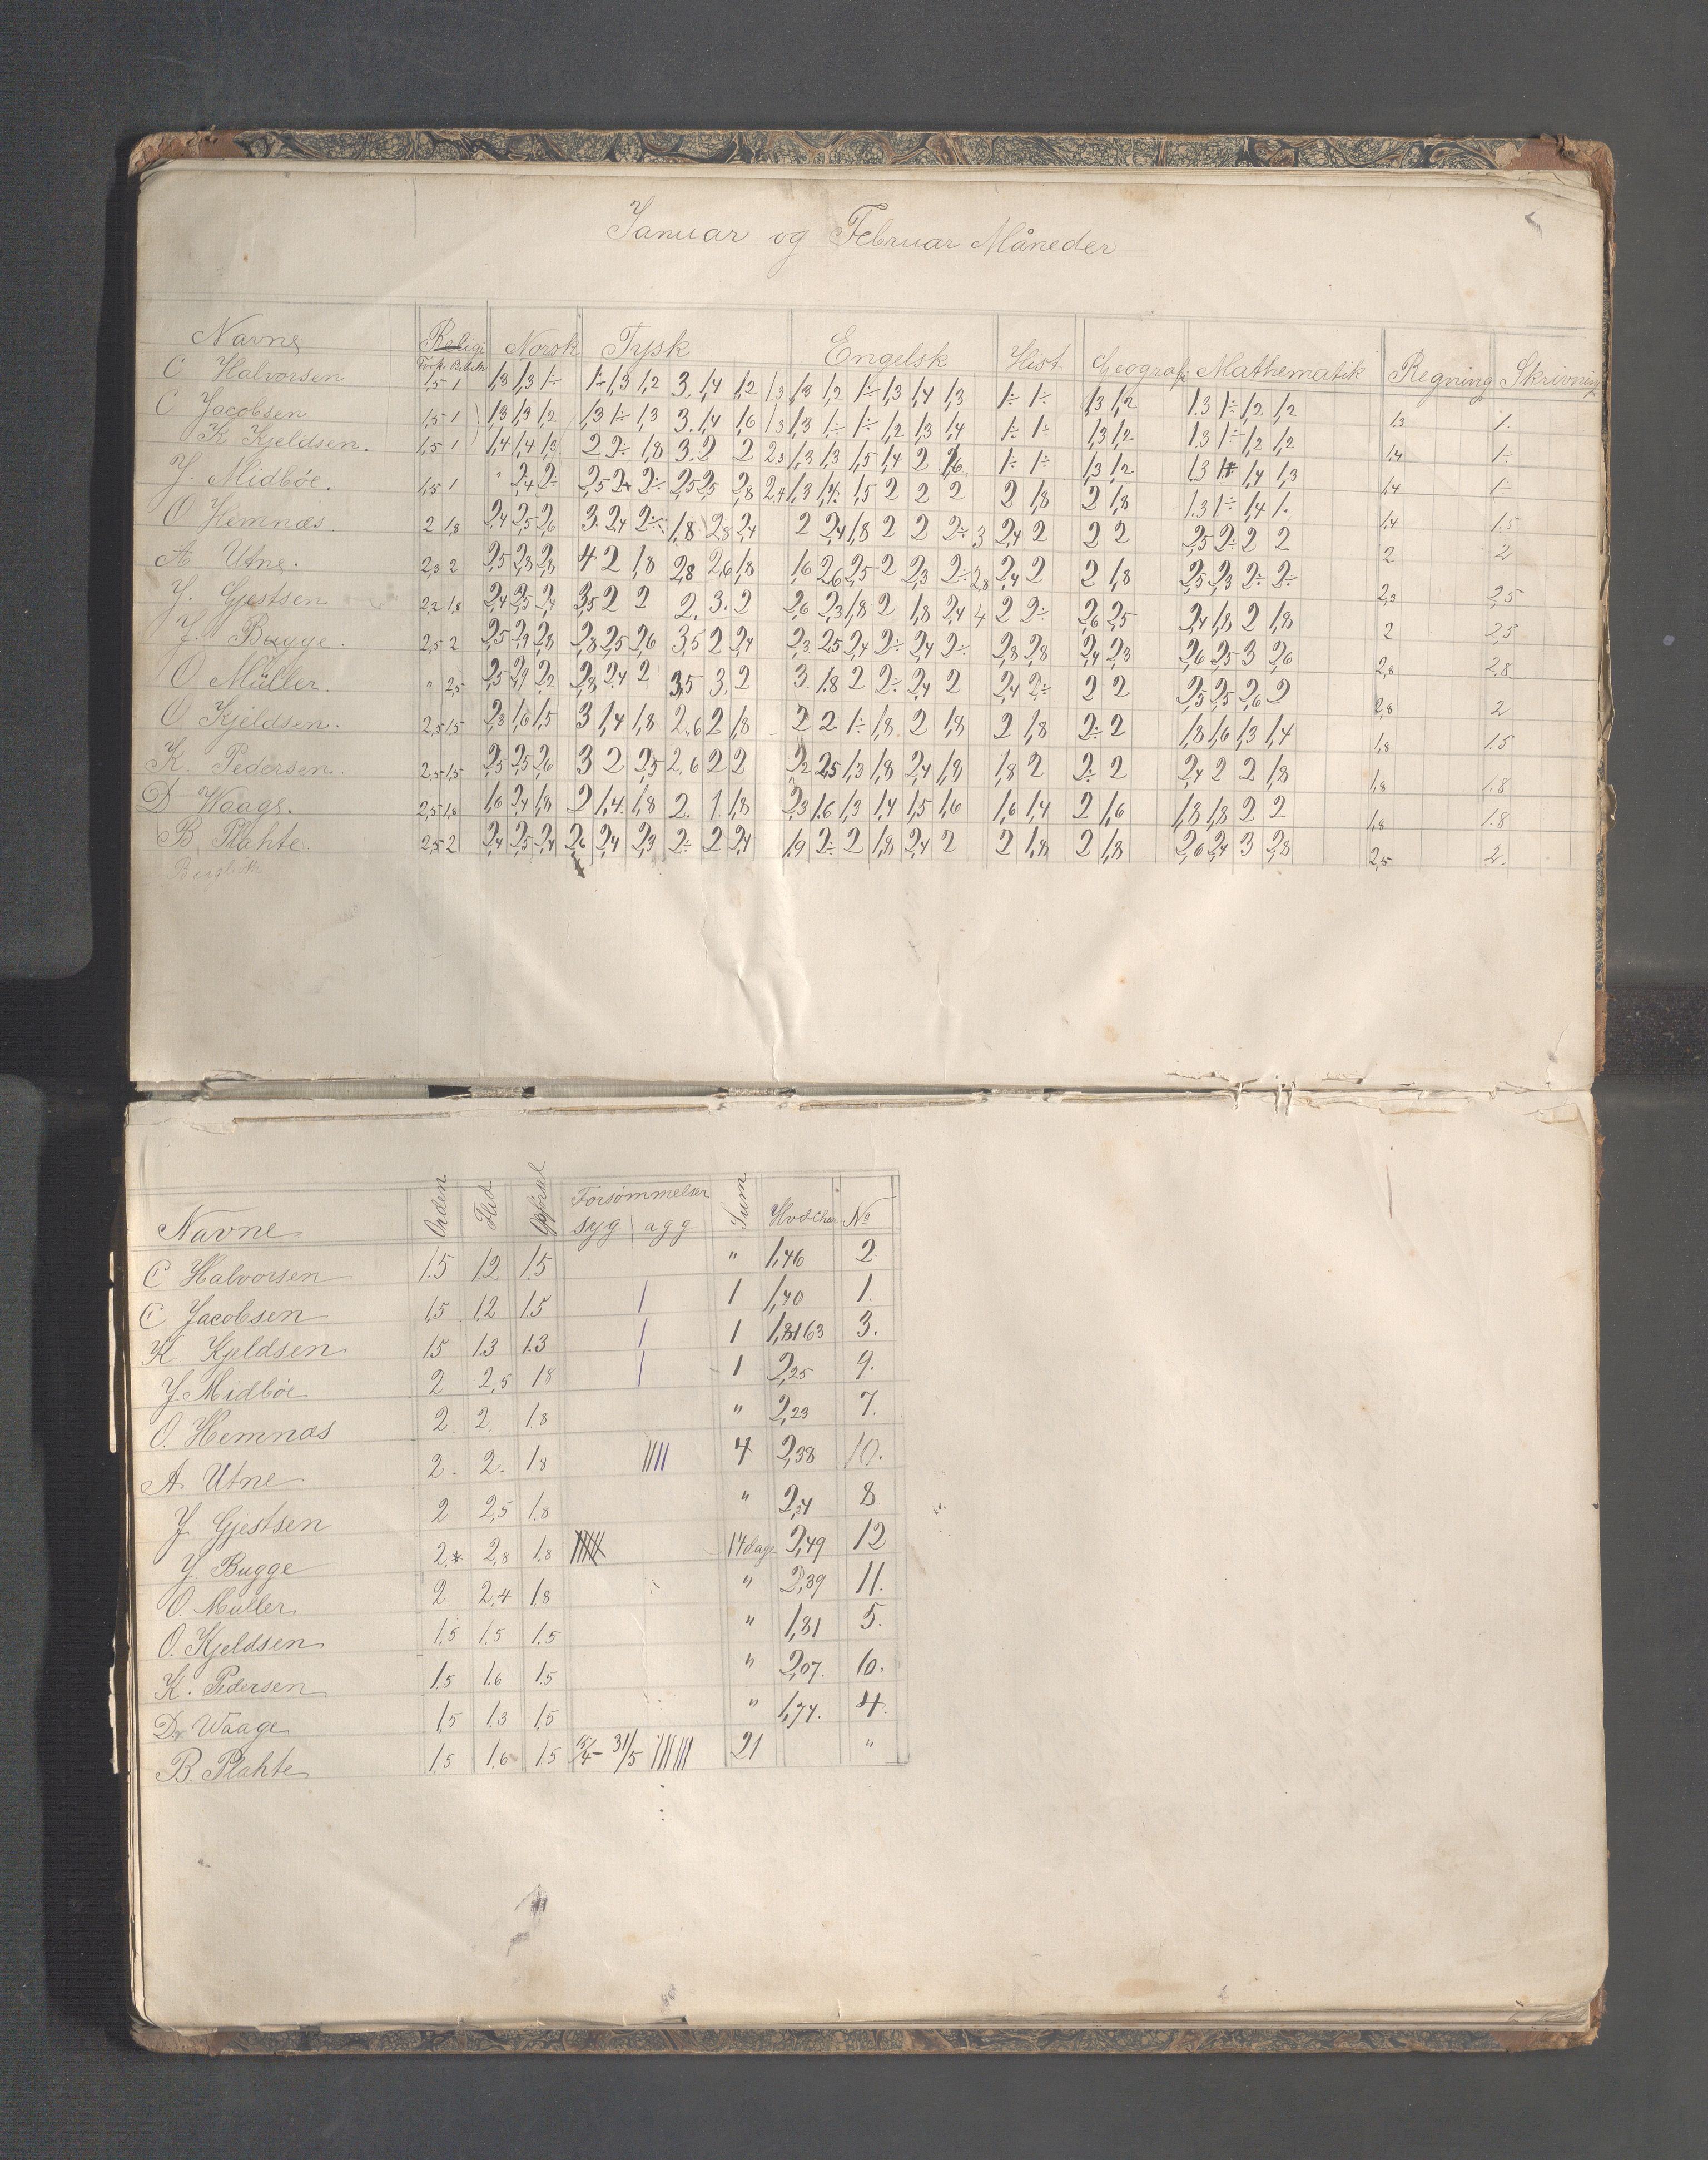 Januar og Februar Måneder
Navne Religi Norsk Tysk Engelsk Hist Geografi Mathematik Regning Skrivning
C Halvorsen 1,5 1 1,3 1,3 1÷ 1÷ 1,3 1,2 3. 1,4 1,2 1,3 1,3 1,2 1÷ 1,3 1,4 1,3 1÷ 1÷ 1,3 1,2 1.3 1÷ 1,2 1,2 1,3 1.
C Jacobsen 1,5 1 1,3 1,3 1,2 1,3 1÷ 1,3 3. 1,4 1,6 1,3 1,3 1÷ 1÷ 1,2 1,3 1,4 1÷ 1÷ 1,3 1,2 1.3 1÷ 1,2 1,2 1,4 1÷
K Kjeldsen. 1,5 1 1,4 1,4 1,3 2 2÷ 1,8 3. 2 2 2,3 1,3 1,3 1,5 1,4 2 1÷ 1÷ 1,3 1,2 1,4 1,3 1,4 1÷
J. Midböe. 1,5 1 " 2,4 2÷ 2,5 2÷ 2,5 2,5 2,8 2,4 1,3 1,4 1,5 2 2 2 2 1,8 2 1,8 1.3 1÷ 1,4 1. 1,4 1.5
O Hemnæs. 2 1,8 2,4 2,5 2,6 3. 2,4 2÷ 1,8 2,8 2,4 2 2,4 1,8 2 2 2÷ 3 2,4 2 2 2 2,5 2÷ 2 2 2 2
A Utne. 2,3 2 2,5 2,8 2,8 4 2 1,8 2,8 2,6 1,8 1,6 2,6 2,5 2 2,3 2÷ 2,8 2,4 2 2 1,8 2,5 2,3 2÷ 2÷ 2,3 2,5
J. Gjestsen 2,2 1,8 2,4 2,5 2,4 3,5 2 2 2. 3. 2 2,6 2,3 1,8 2 1,8 2,4 4 2 2÷ 2,6 2,5 2,4 1,8 2 1,8 2 2,5
J. Bugge. 2,5 2 2,5 2,9 2,8 2,8 2,5 2,6 3,5 2 2,4 2,3 2,5 2,4 2÷ 2,4 2÷ 2,8 2,8 2,4 2,3 2,6 2,5 3 2,6 2,8 2,8
O Müller. " 2,5 2,5 2,9 2,2 2,8 2,4 2 3,5 3. 2 3. 1.8 2 2÷ 2,4 2 2,4 2÷ 2 2 2,5 2,5 2,6 2 2,8 2
O Kjeldsen. 2,5 1,5 2,3 1,6 1,5 3 1,4 1,8 2,6 2 1,8 2 2 1÷ 1,8 2 1,8 2 1,8 2÷ 2 1,8 1,6 1,3 1,4 1,8 1.5
K. Pedersen. 2,5 1,5 2,5 2,5 2,6 3 2 2,5 2,6 2 2 2,2 2,5 1,3 1,8 2,4 1,8 1,8 2 2÷ 2 2,4 2 2 1,8 1,8 1.8
D Waage. 2,5 1,8 1,6 2,4 1,8 2 1,4. 1,8 2. 1. 1,8 2,3 1.6 1,3 1,4 1,5 1,6 1,6 1,4 2 1,6 1,8 1,8 2 2 1,8 1.8
B. Plahte. 2,5 2 2,4 2,5 2,4 2,6 2,4 2,3 2÷ 2 2,4 1,9 2÷ 2 1,8 2,4 2 2 1,8 2 1,8 2,6 2,4 3 2,8 2,5 2.
Navne Orden Flid Opførsel Forsømmelser Sum Hvd Char No
syg agg
C Halvorsen 1.5 1.2 1.5 " 1,46 2.
C Jacobsen 1,5 1.2 1.5 | 1 1,40 1.
K Kjeldsen 1.5 1.3 1.3 | 1 1,63 3.
J. Midböe 2 2,5 1.8 | 1 2,25 9.
O. Hemnæs 2. 2. 1.8 " 2,23 7.
A. Utne 2. 2. 1.8 |||| 4 2,38 10.
J. Gjestsen 2 2,5 1.8 " 2,24 8.
J. Bugge 2. 2,8 1.8 14 dage 2,49 12
O. Müller 2 2,4 1,8 " 2,39 11.
O. Kjeldsen 1,5 1,5 1.5 " 1,81 5.
K. Pedersen 1.5 1.6 1.5 " 2,07. 6.
D. Waage 1,5 1.3 1,5 " 1,74. 4.
B. Plahte 1,5 1.6 1.5 15/4 - 31/5 |||||| 21 "